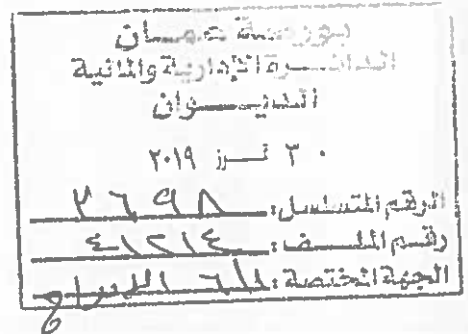 بورصة عمان
الدائرة الإدارية والمالية
الديوان
٣٠ تموز ٢٠١٩
الرقم المتسلسل: ٣٦٩٨
رقم الملف: ٤١٢١٤
الجهة المختصة: